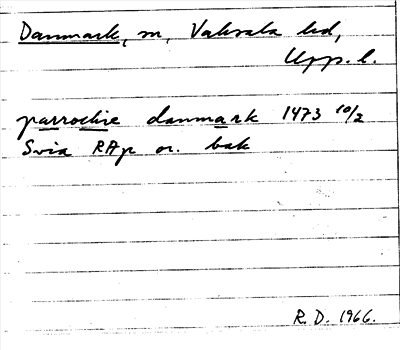 Danmark, sn, Vaksala hd,
Upp. l.
parrochie danmark 1473 10/2
Svia RAp or. bak
R. D. 1966.